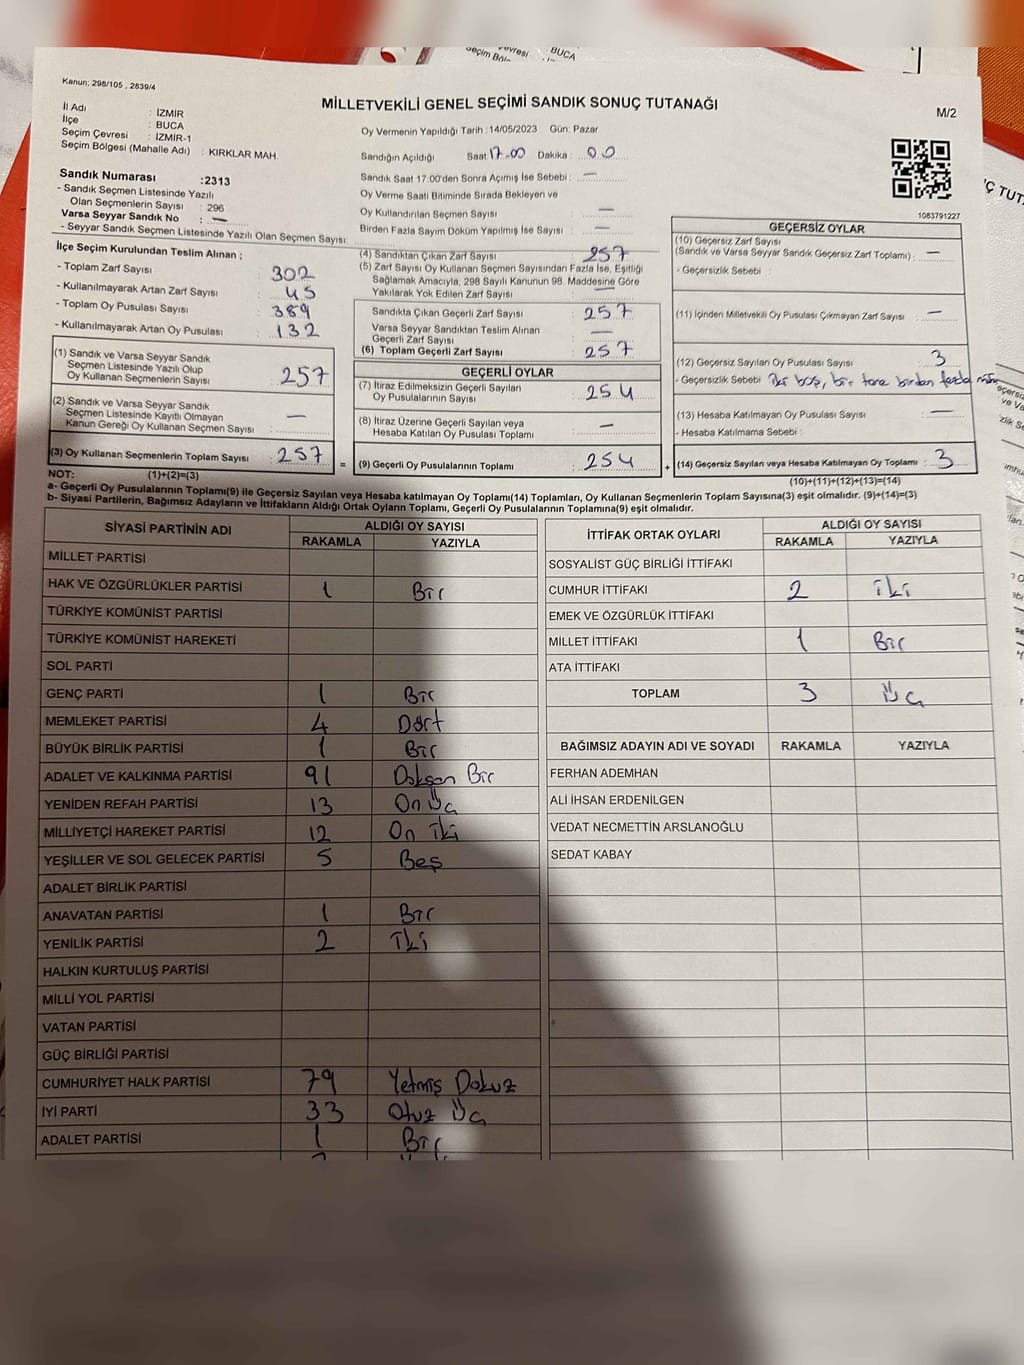 BUCA
Kanun; 298/105 , 2839/4
MİLLETVEKİLİ GENEL SEÇİMİ SANDIK SONUÇ TUTANAĞI
M/2
İl Adı : İZMİR
İlçe : BUCA
Seçim Çevresi : İZMİR-1
Seçim Bölgesi (Mahalle Adı) : KIRKLAR MAH.
Oy Vermenin Yapıldığı Tarih :14/05/2023 Gün: Pazar
Sandığın Açıldığı Saat 17.00 Dakika : 00
Sandık Saat 17.00'den Sonra Açımış İse Sebebi : —
Oy Verme Saati Bitiminde Sırada Bekleyen ve
Oy Kullandırılan Seçmen Sayısı : —
Birden Fazla Sayım Döküm Yapılmış İse Sayısı : —
1083791227
Sandık Numarası :2313
- Sandık Seçmen Listesinde Yazılı
Olan Seçmenlerin Sayısı : 296
Varsa Seyyar Sandık No : —
- Seyyar Sandık Seçmen Listesinde Yazılı Olan Seçmen Sayısı:
İlçe Seçim Kurulundan Teslim Alınan ;
- Toplam Zarf Sayısı : 302
- Kullanılmayarak Artan Zarf Sayısı : 45
- Toplam Oy Pusulası Sayısı : 389
- Kullanılmayarak Artan Oy Pusulası : 132
(1) Sandık ve Varsa Seyyar Sandık
Seçmen Listesinde Yazılı Olup
Oy Kullanan Seçmenlerin Sayısı : 257
(2) Sandık ve Varsa Seyyar Sandık
Seçmen Listesinde Kayıtlı Olmayan
Kanun Gereği Oy Kullanan Seçmen Sayısı : —
(3) Oy Kullanan Seçmenlerin Toplam Sayısı : 257
(1)+(2)=(3)
(4) Sandıktan Çıkan Zarf Sayısı : 257
(5) Zarf Sayısı Oy Kullanan Seçmen Sayısından Fazla İse, Eşitliği
Sağlamak Amacıyla; 298 Sayılı Kanunun 98. Maddesine Göre
Yakılarak Yok Edilen Zarf Sayısı : —
Sandıkta Çıkan Geçerli Zarf Sayısı : 257
Varsa Seyyar Sandıktan Teslim Alınan
Geçerli Zarf Sayısı : —
(6) Toplam Geçerli Zarf Sayısı : 257
GEÇERLİ OYLAR
(7) İtiraz Edilmeksizin Geçerli Sayılan
Oy Pusulalarının Sayısı : 254
(8) İtiraz Üzerine Geçerli Sayılan veya
Hesaba Katılan Oy Pusulası Toplamı : —
= (9) Geçerli Oy Pusulalarının Toplamı : 254 +
GEÇERSİZ OYLAR
(10) Geçersiz Zarf Sayısı
(Sandık ve Varsa Seyyar Sandık Geçersiz Zarf Toplamı) : —
- Geçersizlik Sebebi :
(11) İçinden Milletvekili Oy Pusulası Çıkmayan Zarf Sayısı : —
(12) Geçersiz Sayılan Oy Pusulası Sayısı : 3
- Geçersizlik Sebebi : iki boş, bir tane birden fazla
(13) Hesaba Katılmayan Oy Pusulası Sayısı : —
- Hesaba Katılmama Sebebi :
(14) Geçersiz Sayılan veya Hesaba Katılmayan Oy Toplamı : 3
(10)+(11)+(12)+(13)=(14)
NOT:
a- Geçerli Oy Pusulalarının Toplamı(9) ile Geçersiz Sayılan veya Hesaba katılmayan Oy Toplamı(14) Toplamları, Oy Kullanan Seçmenlerin Toplam Sayısına(3) eşit olmalıdır. (9)+(14)=(3)
b- Siyasi Partilerin, Bağımsız Adayların ve İttifakların Aldığı Ortak Oyların Toplamı, Geçerli Oy Pusulalarının Toplamına(9) eşit olmalıdır.
SİYASİ PARTİNİN ADI ALDIĞI OY SAYISI
RAKAMLA YAZIYLA
MİLLET PARTİSİ
HAK VE ÖZGÜRLÜKLER PARTİSİ 1 Bir
TÜRKİYE KOMÜNİST PARTİSİ
TÜRKİYE KOMÜNİST HAREKETİ
SOL PARTİ
GENÇ PARTİ 1 Bir
MEMLEKET PARTİSİ 4 Dört
BÜYÜK BİRLİK PARTİSİ 1 Bir
ADALET VE KALKINMA PARTİSİ 91 Doksan Bir
YENİDEN REFAH PARTİSİ 13 On Üç
MİLLİYETÇİ HAREKET PARTİSİ 12 On İki
YEŞİLLER VE SOL GELECEK PARTİSİ 5 Beş
ADALET BİRLİK PARTİSİ
ANAVATAN PARTİSİ 1 Bir
YENİLİK PARTİSİ 2 İki
HALKIN KURTULUŞ PARTİSİ
MİLLİ YOL PARTİSİ
VATAN PARTİSİ
GÜÇ BİRLİĞİ PARTİSİ
CUMHURİYET HALK PARTİSİ 79 Yetmiş Dokuz
İYİ PARTİ 33 Otuz Üç
ADALET PARTİSİ 1 Bir
İTTİFAK ORTAK OYLARI ALDIĞI OY SAYISI
RAKAMLA YAZIYLA
SOSYALİST GÜÇ BİRLİĞİ İTTİFAKI
CUMHUR İTTİFAKI 2 İki
EMEK VE ÖZGÜRLÜK İTTİFAKI
MİLLET İTTİFAKI 1 Bir
ATA İTTİFAKI
TOPLAM 3 Üç
BAĞIMSIZ ADAYIN ADI VE SOYADI RAKAMLA YAZIYLA
FERHAN ADEMHAN
ALİ İHSAN ERDENİLGEN
VEDAT NECMETTİN ARSLANOĞLU
SEDAT KABAY